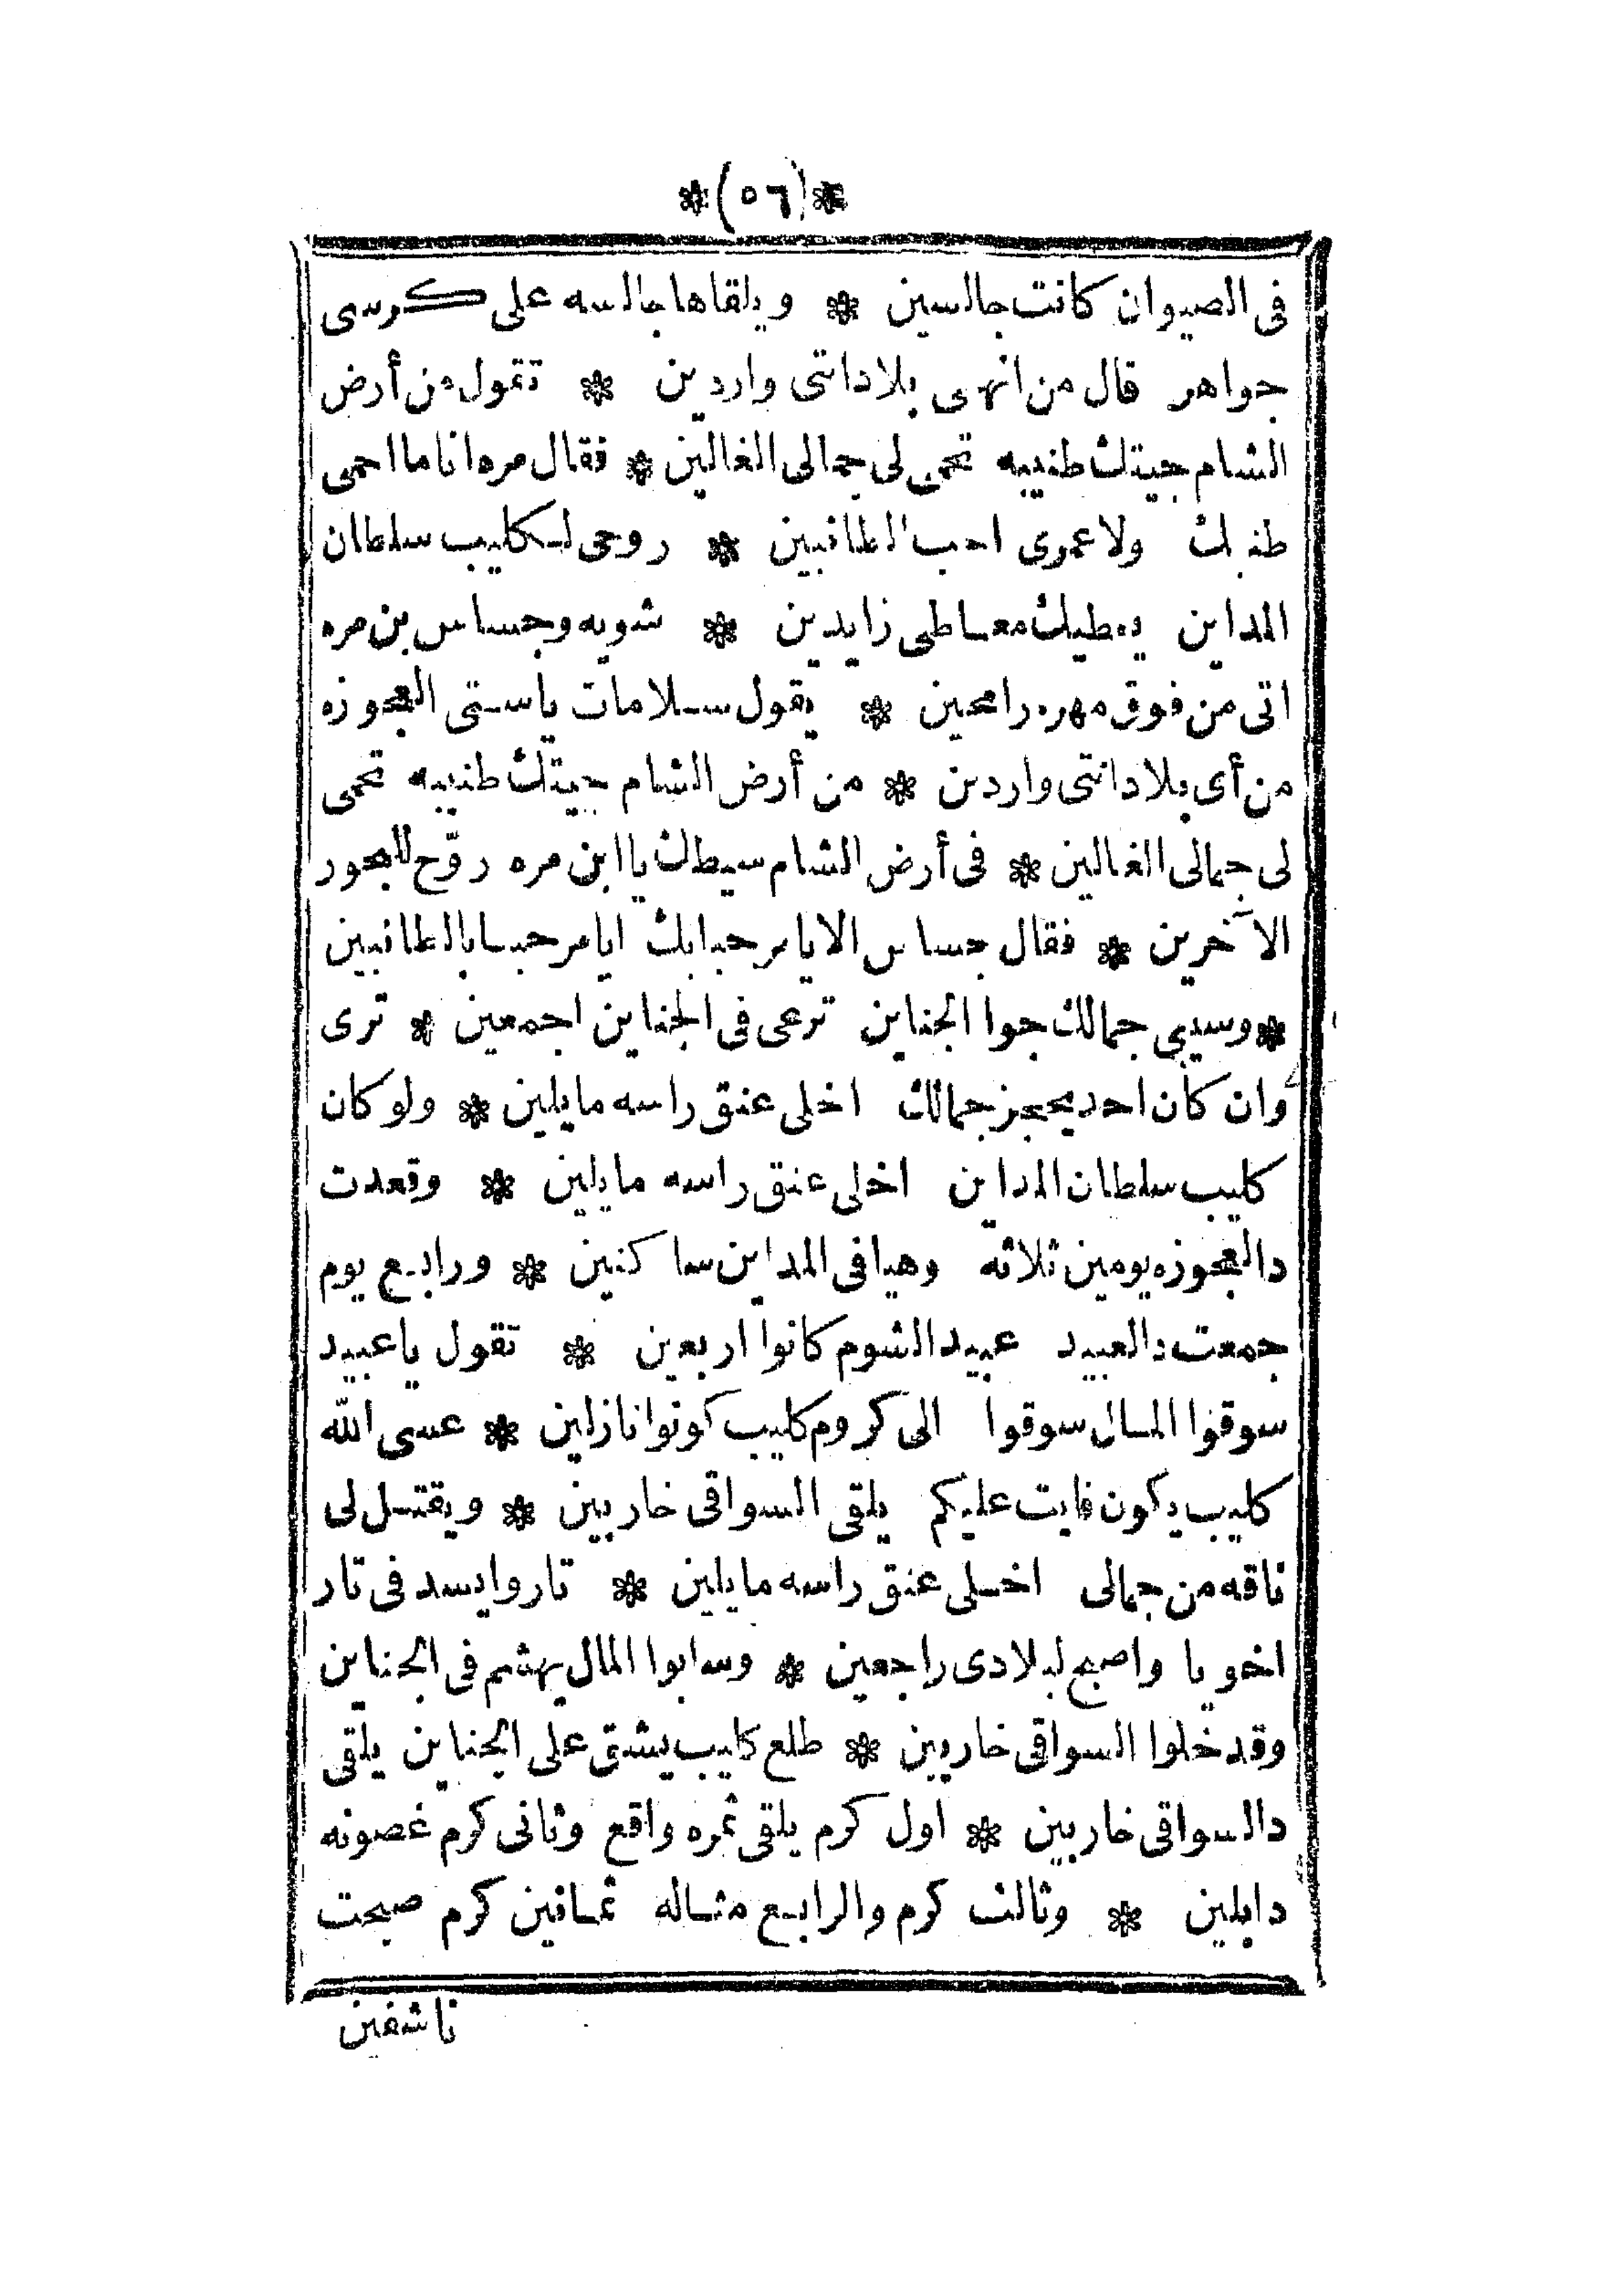 *(٥٦)*
فى الصيوان كانت جالسين * ويلقاها جالسه على كرسى
جواهر قال من انهى بلاد انتى واردين * تقول من أرض
الشام جيتك طنيبه تحمى لى جمالى الغالين * فقال مره انا ما احمى
طنبك ولا عمرى احب الطانبين * روحى لكليب سلطان
المداين يعطيك معاطى زايدين * شويه وجساس بن مره
اتى من فوق مهره رامحين * يقول سلامات ياستى العجوزه
من أى بلاد انتى واردين * من أرض الشام جيتك طنيبه تحمى
لى جمالى الغالين * فى أرض الشام سيطك يا ابن مره روّح للبحور
الآخرين * فقال جساس الايا مرحبا بك ايا مرحبا بالطانبين
* وسيبى جمالك جوا الجناين ترعى فى الجناين اجمعين * ترى
وان كان احد يحجز جمالك اخلى عنق راسه مايلين * ولو كان
كليب سلطان المداين اخلى عنق راسه مايلين * وقعدت
دالعجوزه يومين ثلاثة وهيا فى المداين ساكنين * ورابع يوم
جمعت دالعبيد عبيد الشوم كانوا اربعين * تقول ياعبيد
سوقوا المال سوقوا الى كروم كليب كونوا نازلين * عسى الله
كليب يكون فايت عليكم يلقى السواقى خاربين * ويقتل لى
ناقه من جمالى اخلى عنق راسه مايلين * تار وايسد فى تار
اخويا واصبح لبلادى راجعين * وسابوا المال يهشم فى الجناين
وقد خلوا السواقى خاربين * طلع كليب يشق على الجناين يلقى
دالسواقى خاربين * اول كرم يلقى ثمره واقع وثانى كرم غصونه
دابلين * وثالث كرم والرابع مثاله ثمانين كرم صبحت
ناشفين